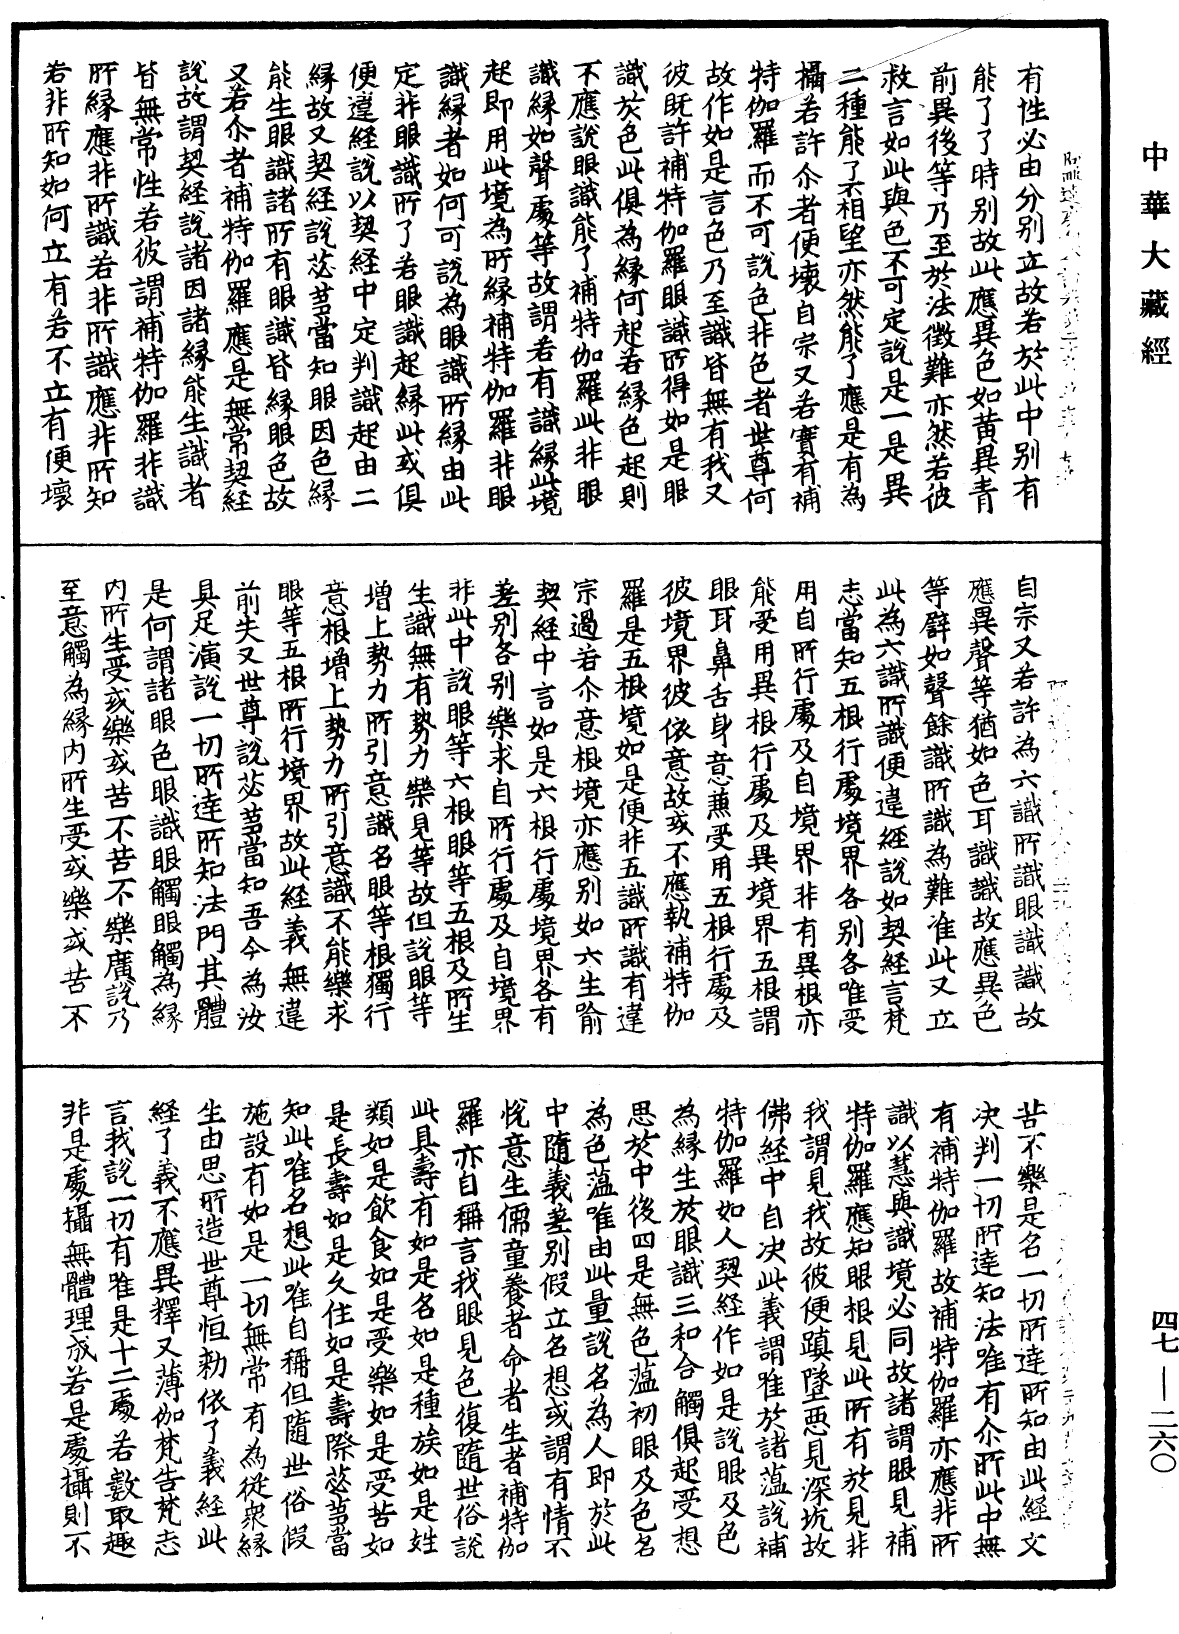 中華大藏經
有性必由分別立故若於此中別有
能了了時別故此應異色如黃異青
前異後等乃至於法徵難亦然若彼
救言如此與色不可定說是一是異
二種能了不相望亦然能了應是有為
攝若許尒者便壞自宗又若實有補
特伽羅而不可說色非色者世尊何
故作如是言色乃至識皆無有我又
彼既許補特伽羅眼識所得如是眼
識於色此俱為緣何起若緣色起則
不應說眼識能了補特伽羅此非眼
識緣如聲處等故謂若有識緣此境
起即用此境為所緣補特伽羅非眼
識緣者如何可說為眼識所緣由此
定非眼識所了若眼識起緣此或俱
便違經說以契經中定判識起由二
緣故又契經說苾芻當知眼因色緣
能生眼識諸所有眼識皆緣眼色故
又若尒者補特伽羅應是無常契經
說故謂契經說諸因諸緣能生識者
皆無常性若彼謂補特伽羅非識
所緣應非所識若非所識應非所知
若非所知如何立有若不立有便壞
自宗又若許為六識所識眼識識故
應異聲等猶如色耳識識故應異色
等譬如聲餘識所識為難准此又立
此為六識所識便違經說如契經言梵
志當知五根行處境界各別各唯受
用自所行處及自境界非有異根亦
能受用異根行處及異境界五根謂
眼耳鼻舌身意兼受用五根行處及
彼境界彼依意故或不應執補特伽
羅是五根境如是便非五識所識有違
宗過若尒意根境亦應別如六生喻
契經中言如是六根行處境界各有
差別各別樂求自所行處及自境界
非此中說眼等六根眼等五根及所生
生識無有勢力樂見等故但說眼等
增上勢力所引意識名眼等根獨行
意根增上勢力所引意識不能樂求
眼等五根所行境界故此經義無違
前失又世尊說苾芻當知吾今為汝
具足演說一切所達所知法門其體
是何謂諸眼色眼識眼觸眼觸為緣
內所生受或樂或苦不苦不樂廣說乃
至意觸為緣內所生受或樂或苦不
苦不樂是名一切所達所知由此經文
決判一切所達知法唯有尒所此中無
有補特伽羅故補特伽羅亦應非所
識以慧與識境必同故諸謂眼見補
特伽羅應知眼根見此所有於見非
我謂見我故彼便蹎墜惡見深坑故
佛經中自決此義謂唯於諸蘊說補
特伽羅如人契經作如是說眼及色
為緣生於眼識三和合觸俱起受想
思於中後四是無色蘊初眼及色名
為色蘊唯由此量說名為人即於此
中隨義差別假立名想或謂有情不
悅意生儒童養者命者生者補特伽
羅亦自稱言我眼見色復隨世俗說
此具壽有如是名如是種族如是姓
類如是飲食如是受樂如是受苦如
是長壽如是久住如是壽際苾芻當
知此唯名想此唯自稱但隨世俗假
施設有如是一切無常有為從眾緣
生由思所造世尊恒勑依了義經此
經了義不應異釋又薄伽梵告梵志
言我說一切有唯是十二處若數取趣
非是處攝無體理成若是處攝則不
四七—二六〇